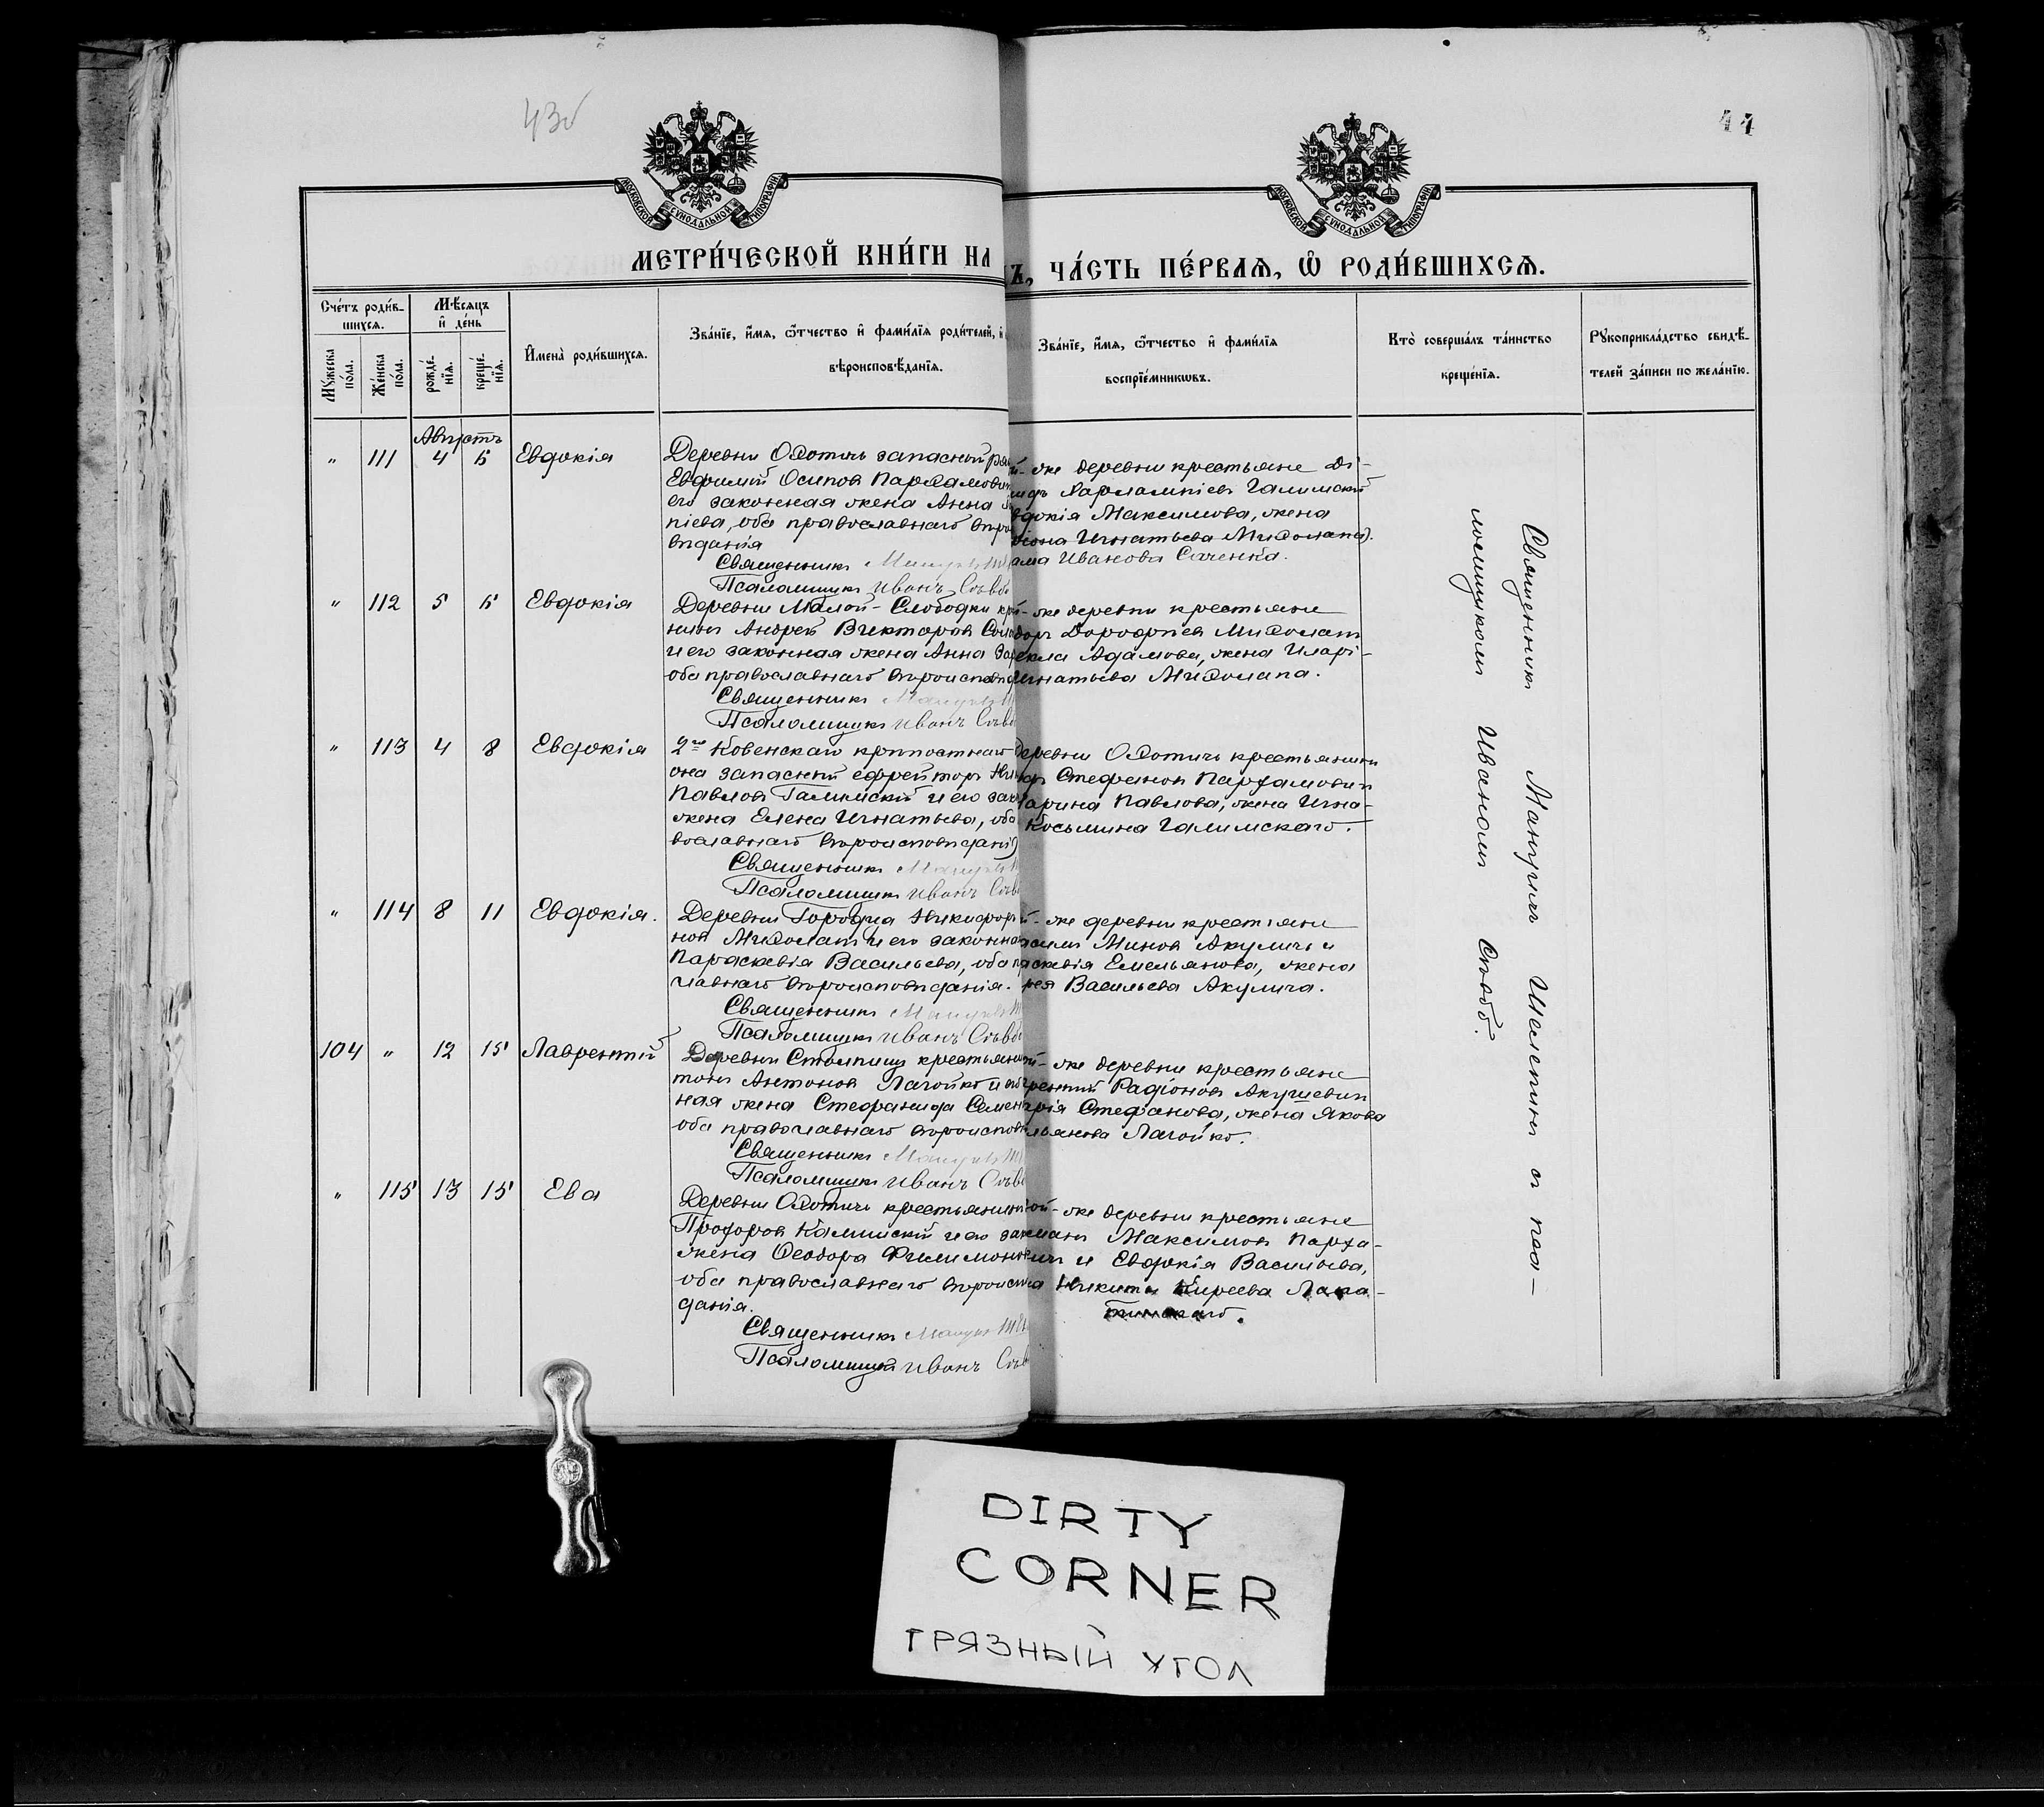 43об
44
МОСКОВСКОЙ СѴНОДАЛЬНОЙ ТИПОГРАФІИ
МОСКОВСКОЙ СѴНОДАЛЬНОЙ ТИПОГРАФІИ
МЕТРИ́ЧЕСКОЙ КНИ́ГИ НА
Ъ, ЧА́СТЬ ПЕ́РВАѦ, Ѿ РОДИ́ВШИХСѦ.
Сче́тъ роди́в-
шихсѧ.
Мꙋ́жеска по́ла.
Же́нска по́ла.
Мѣ́сѧцъ
и҆ де́нь
рожде́-
нїѧ.
креще́-
нїѧ.
И҆мена̀ роди́вшихсѧ.
Зва́нїе, и҆́мѧ, ѻ҆́тчество и҆ фами́лїѧ роди́телей, и҆
вѣроисповѣ́данїѧ.
Зва́нїе, и҆́мѧ, ѻ҆́тчество и҆ фами́лїѧ
воспрїе́мникѡвъ.
Кто̀ соверша́лъ та́инство
креще́нїѧ.
Рꙋкоприкла́дство свидѣ́-
телей за́писи по жела́нїю.
Августъ
" 111 4 5 Евдокія
Деревни Охотичь запасный ряд
Евфимій Осиповъ Пархамович
его законная жена Анна
піева, оба православнаго вѣро
вѣданія
Священникъ
Псаломщикъ Иванъ
й-же деревни крестьяне Ді-
идъ Харлампіевъ Галимскій
вдокія Максимова, жена
Игнатьева Михолапа.
ама Иванова Саченка.
" 112 5 5 Евдокія
Деревни Малой-Слободки кр
нинъ Андрей Викторовъ
и его законная жена Анна
оба православнаго вѣроисповѣд
Священникъ
Псаломщикъ Иванъ
й-же деревни крестьяне
доръ Дорофеевъ Михолап
екла Адамова, жена Иларі-
Игнатьева Михолапа.
" 113 4 8 Евдокія
2го Ковенскаго крѣпостнаго
она запасный ефрейторъ
Павловъ Галимскій и его зак
жена Елена Игнатьева, оба
вославнаго вѣроисповѣданія
Священникъ
Псаломщикъ Иванъ
Деревни Охотичь крестьянинъ
Стефановъ Пархамович
арина Павлова, жена Игна-
Косьмина Галимскаго.
" 114 8 11 Евдокія.
Деревни Городца Никифор
новъ Михолапъ и его законна
Параскевія Васильева, оба пр
славнаго вѣроисповѣданія.
Священникъ
Псаломщикъ Иванъ
й-же деревни крестьяне
асилій Миновъ Акуличъ и
аскевія Емельянова, жена
рея Васильева Акулича.
104 " 12 15 Лаврентій
Деревни Столпищъ крестьянин
тонъ Антоновъ Лагойко и
ная жена Стефанида Семен
оба православнаго вѣроисповѣ
Священникъ
Псаломщикъ Иванъ
й-же деревни крестьяне
рентій Радіоновъ Акушевич
рія Стефанова, жена Якова
льянова Лагойко.
" 115 13 15 Ева
Деревни Охотичь крестьянинъ
Прохоровъ Калимскій и его зак
жена Ѳеодора Филимонов
оба православнаго вѣроиспо
данія.
Священникъ
Псаломщикъ Иванъ
ой-же деревни крестьяне
Максимовъ Парха-
ичъ и Евдокія Васильева,
а Никиты Киреева
Священникъ Шелепинъ съ пса-
ломщикомъ Иваномъ
DIRTY
CORNER
ГРЯЗНЫЙ УГОЛ